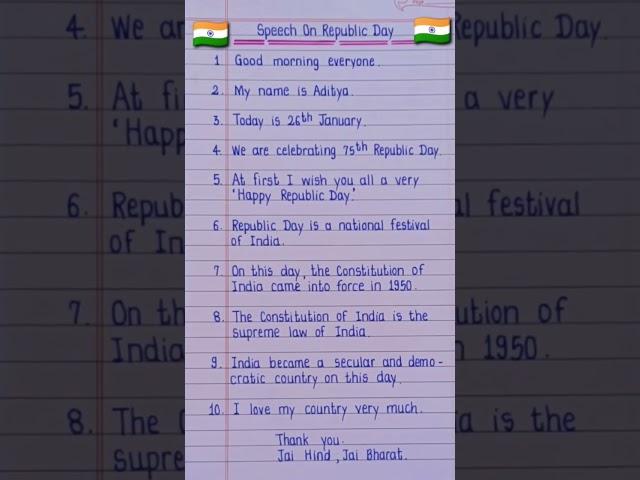 Speech On Republic Day
1 Good morning everyone.
2. My name is Aditya.
3. Today is 26th January.
4. We are celebrating 75th Republic Day.
5. At first I wish you all a very
'Happy Republic Day.'
6. Republic Day is a national festival
of India.
7. On this day, the Constitution of
India came into force in 1950.
8. The Constitution of India is the
supreme law of India.
9. India became a secular and demo-
cratic country on this day.
10. I love my country very much.
Thank you.
Jai Hind, Jai Bharat.